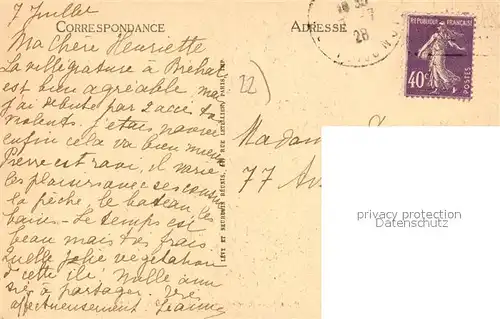 7 Juillet
CORRESPONDANCE
ADRESSE
Ma Chère Henriette
La villégiature à Bréhat
est bien agréable mais
j'ai débuté par 2 accès
violents. J'étais navrée
enfin cela va bien mieux
Pierre est ravi, il varie
les plaisirs avec ses cousins
la pêche, le bateau, les
bains - Le temps est
beau mais très frais
Quelle jolie végétation
d cette île! Mille
à partager.
affectueusement Jeanne
LÉVY ET NEURDEIN RÉUNIS, 44, RUE LETELLIER, PARIS
22
28
RÉPUBLIQUE FRANÇAISE
40c
POSTES
Madam
77 Av
privacy protection
Datenschutz